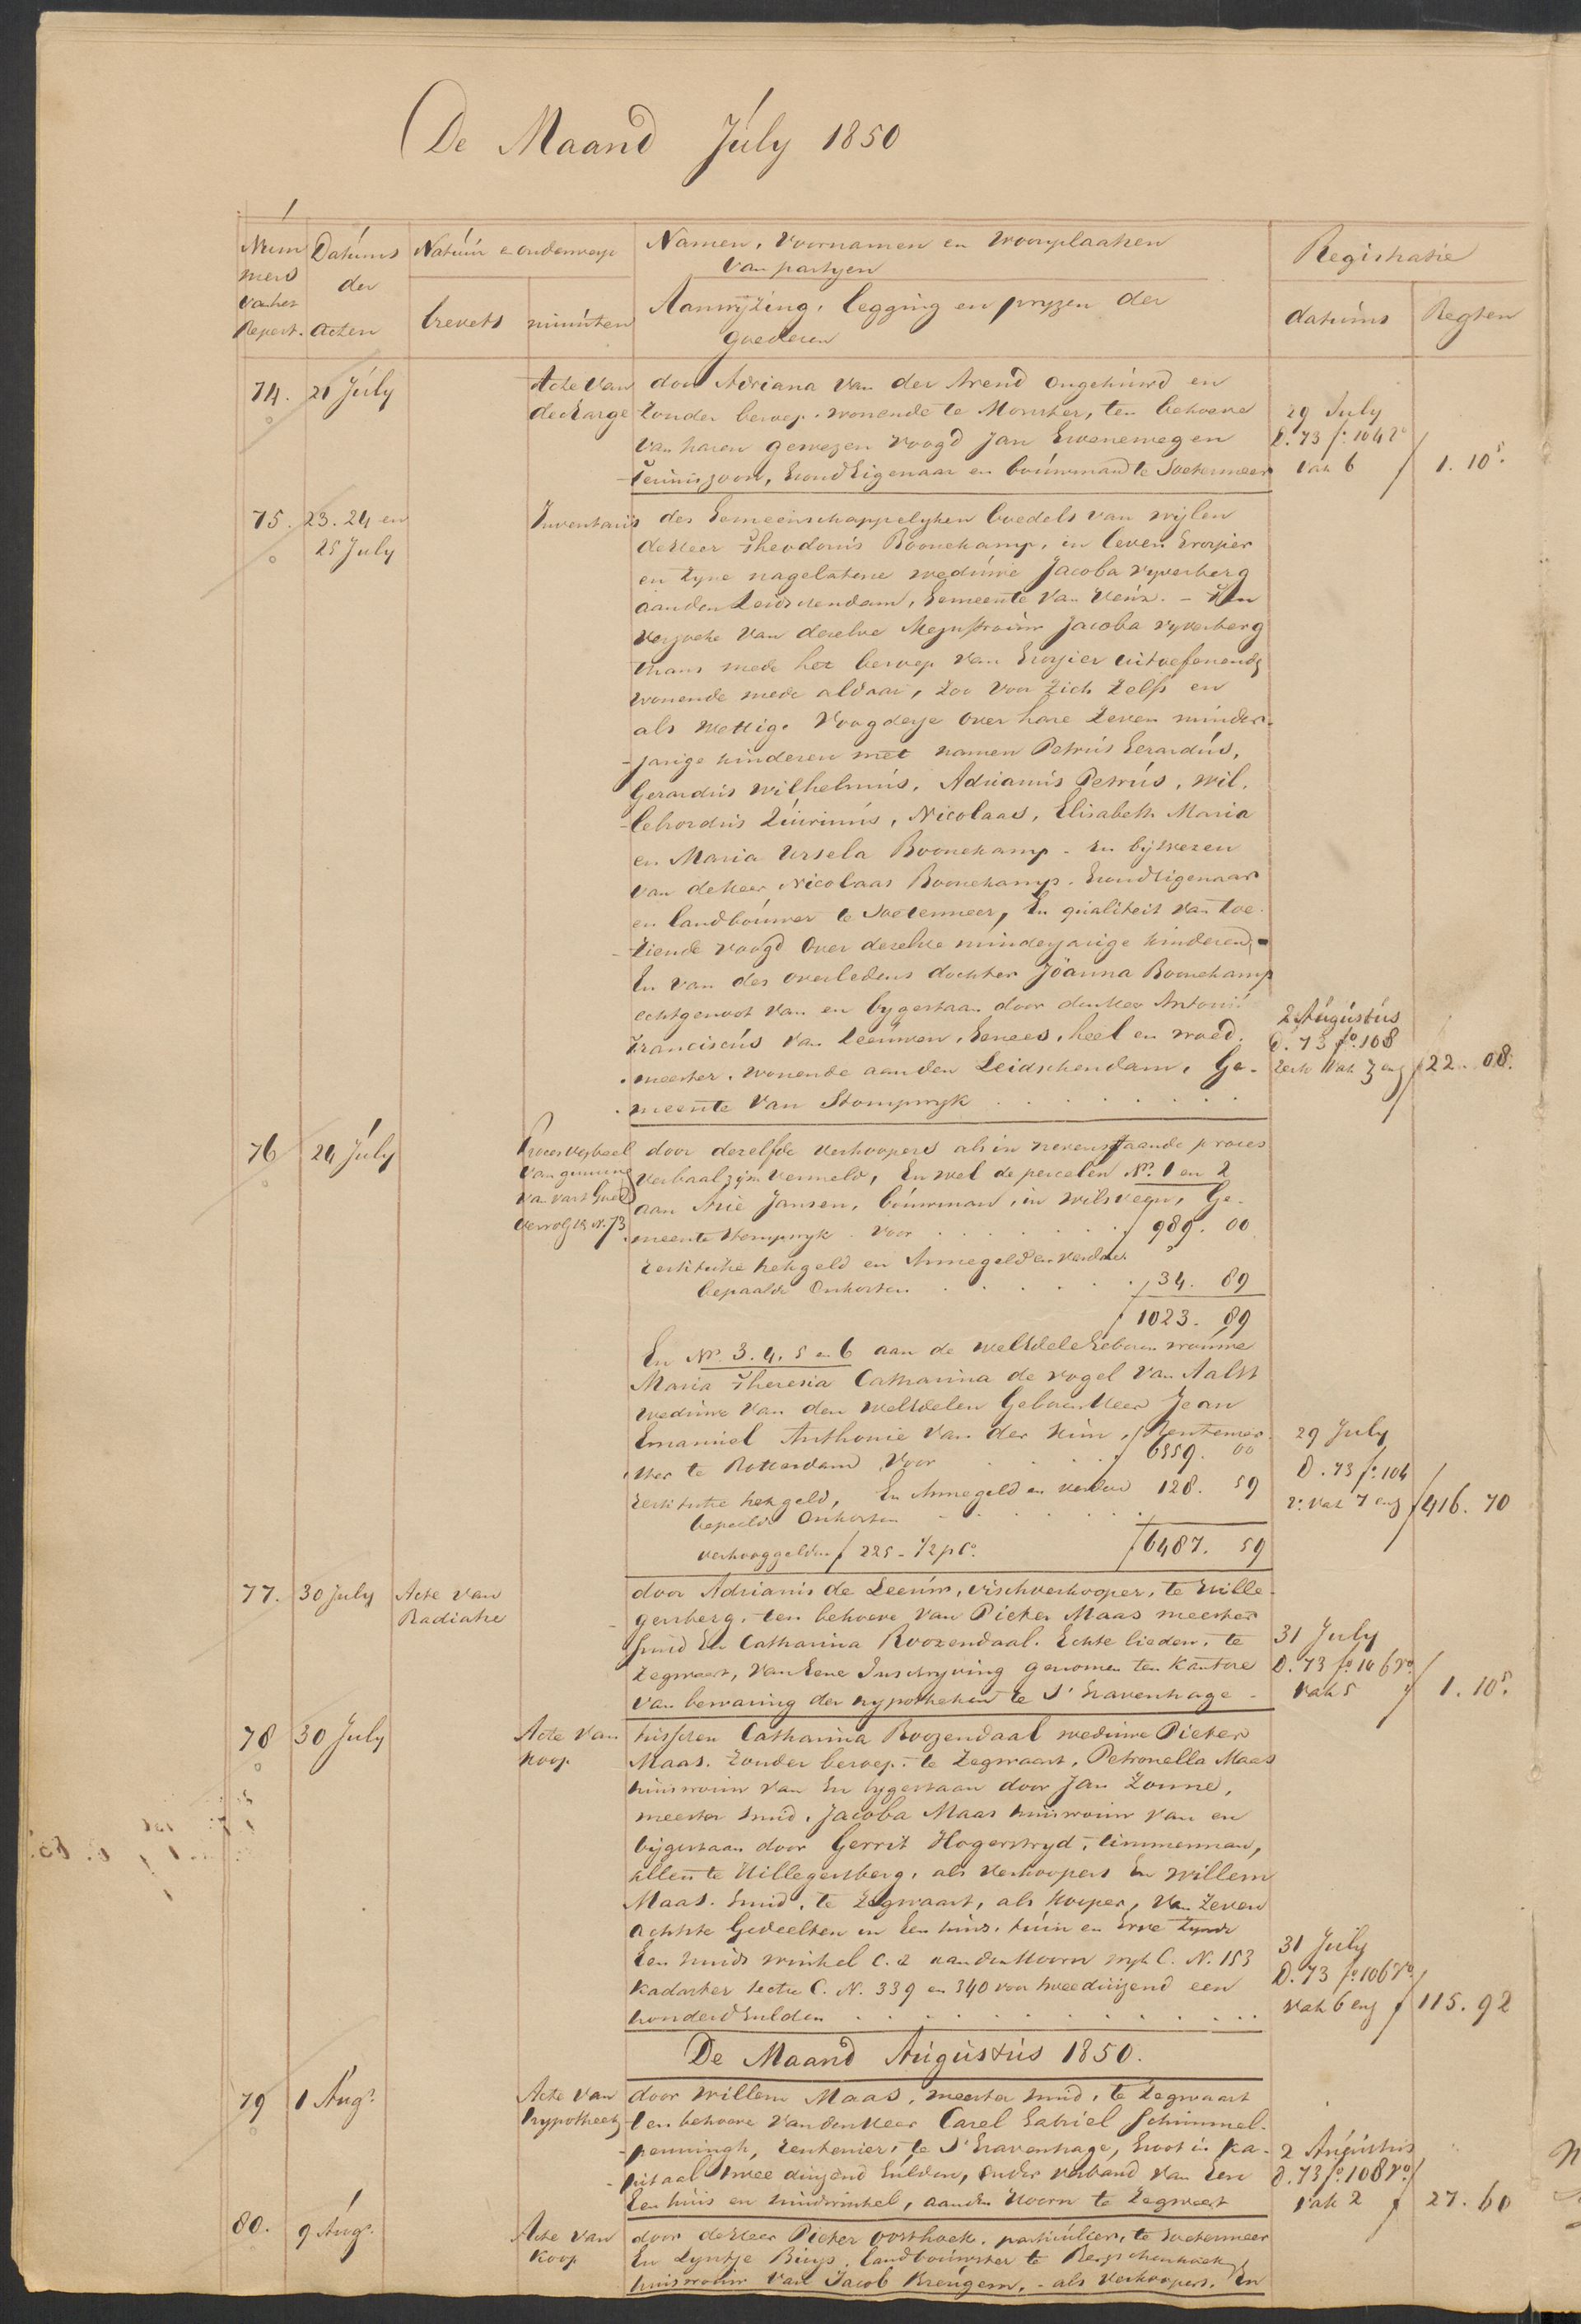 De Maand July 1850
Num
mers
van het
Repert.
Datums
der
acten
Natuur en onderwerp
brevets minuten
Namen, Voornamen en Woonplaatsen
van partyen
Aanwyzing, legging en pryzen der
goederen
Registratie
datums Regten
74. 21 July
Acte van
decharge
door Adriana van der Arend ongehuwd en
zonder beroep, wonende te Monster, ten behoeve
van haren gewezen voogd Jan
Teuniszoon, Grond Eigenaar en bouwman te Soetermeer
29 July
D. 73 fo. 104 vo
vak 6 f 1. 10 5.
75. 23. 24 en
25 July
Inventaris
des Gemeenschappelyken boedels van wijlen
de Heer Theodorus Boonekamp, in leven Grossier
en zyne nagelatene weduwe Jacoba Vyverberg
aan den Leidschendam, Gemeente van Veur. - Ten
verzoeke van dezelve Mejuffrouw Jacoba Vyverberg
thans mede het beroep van Grossier uitoefenende
wonende mede aldaar, zoo voor zich zelfs en
als wettige Voogdesse over hare zeven minder-
-jarige kinderen met namen Petrus Gerardus,
Gerardus Wilhelmus, Adrianus Petrus, Wil-
-lebrordus Quirinus, Nicolaas, Elisabeth Maria
en Maria Ursela Boonekamp - In bijwezen
van de Heer Nicolaas Boonekamp, Grond Eigenaar
en landbouwer te Soetermeer, In qualiteit van toe-
-ziende voogd over dezelve minderjarige kinderen, -
En van des overledens dochter Joanna Boonekamp
echtgenoot van en bygestaan door den Heer Antoni
Franciscus van Leeuwen, Genees, heel en vroed-
-meester, wonende aan den Leidschendam, Ge-
-meente van Stompwyk
2 Augustus
D. 73 fo. 108
recto vak 3 enz f 22. 08.
76 24 July
Proces verbaal
van gunning
van vast Goed
vervolg v. N. 73
door dezelfde verkoopers als in nevenstaande proces
verbaal zijn vermeld, En wel de percelen No. 1 en 2
aan Arie Jansen, bouwman, in Wilsveen, Ge-
-meente Stompwyk voor f 989. 00
restitutie hekgeld en Armegeld en verdere
bepaalde Onkosten f 34. 89
f 1023. 89
En No. 3. 4. 5 en 6 aan de weledele Geboren vrouwe
Maria Theresia Catharina de Vogel van Aalst
weduwe van den weledelen Geboren Heer Jean
Emanuel Anthonie van der Kun, Rentenier-
-ster te Rotterdam voor f 6359. 00
restitutie hekgeld, En Armegeld en verdere 128. 59
bepaalde Onkosten
verhooggelden f 225 - 1/2 p Co. f 6487. 59
29 July
D. 73 fo. 104
vo. vak 7 enz f 416. 70
77. 30 July Acte van
Radiatie
door Adrianus de Leeuw, vischverkooper, te Hille-
-gersberg, ten behoeve van Pieter Maas meester
smid En Catharina Roozendaal, Echte lieden, te
Zegwaart, van Eene Inschryving genomen ten Kantore
van bewaring der hypotheken te S' Gravenhage -
31 July
D. 73 fo. 106 vo.
vak 5 f 1. 10 5.
78 30 July
Acte van
Koop
tusschen Catharina Roozendaal weduwe Pieter
Maas, zonder beroep, te Zegwaart, Petronella Maas
huisvrouw van En bygestaan door Jan Zonne,
meester smid, Jacoba Maas huisvrouw van en
bijgestaan door Gerrit Hogerstryd, timmerman,
allen te Hillegersberg, als verkoopers En Willem
Maas, Smid, te Zegwaart, als Kooper, van zeven
achtste Gedeelten in Een huis, tuin en Erve zynde
Een smids winkel C. a aan den Hoorn wyk C. N. 153
Kadaster sectie C. N. 339 en 340 voor tweeduizend een
honderd Gulden
31 July
D. 73 fo. 106 vo.
vak 6 enz f 115. 92
De Maand Augustus 1850.
79 1 Augs.
Acte van
hypotheek
door Willem Maas, meester smid, te Zegwaart
ten behoeve van den Heer Carel Gabriel Schimmel-
-penningh, rentenier, te S' Gravenhage, Groot in Ka-
-pitaal twee duizend Gulden, onder verband van Een
Een huis en smidswinkel, aan den Hoorn te Zegwaart
2 Augustus
D. 73 fo. 108 vo.
vak 2 f 27. 60
80. 9 Augs.
Acte van
Koop
door de Heer Pieter Oosthoek, particulier, te Soetermeer
En Lyntje Buys, landbouwster te Bergschenhoek
huisvrouw van Jacob Kreugem, - als Verkoopers, En